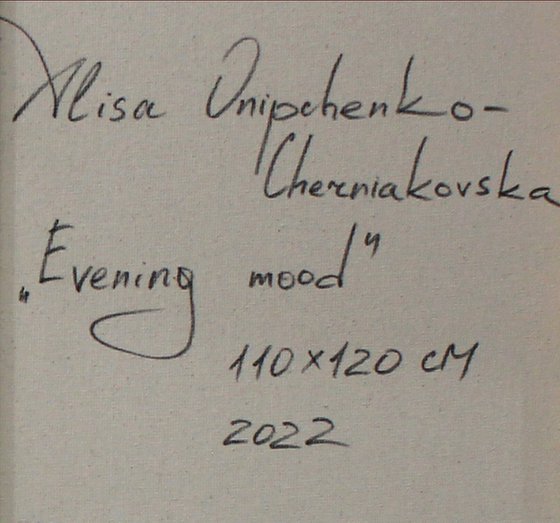 Alisa Onipchenko-
Cherniakovska
„Evening mood"
110x120 cм
2022